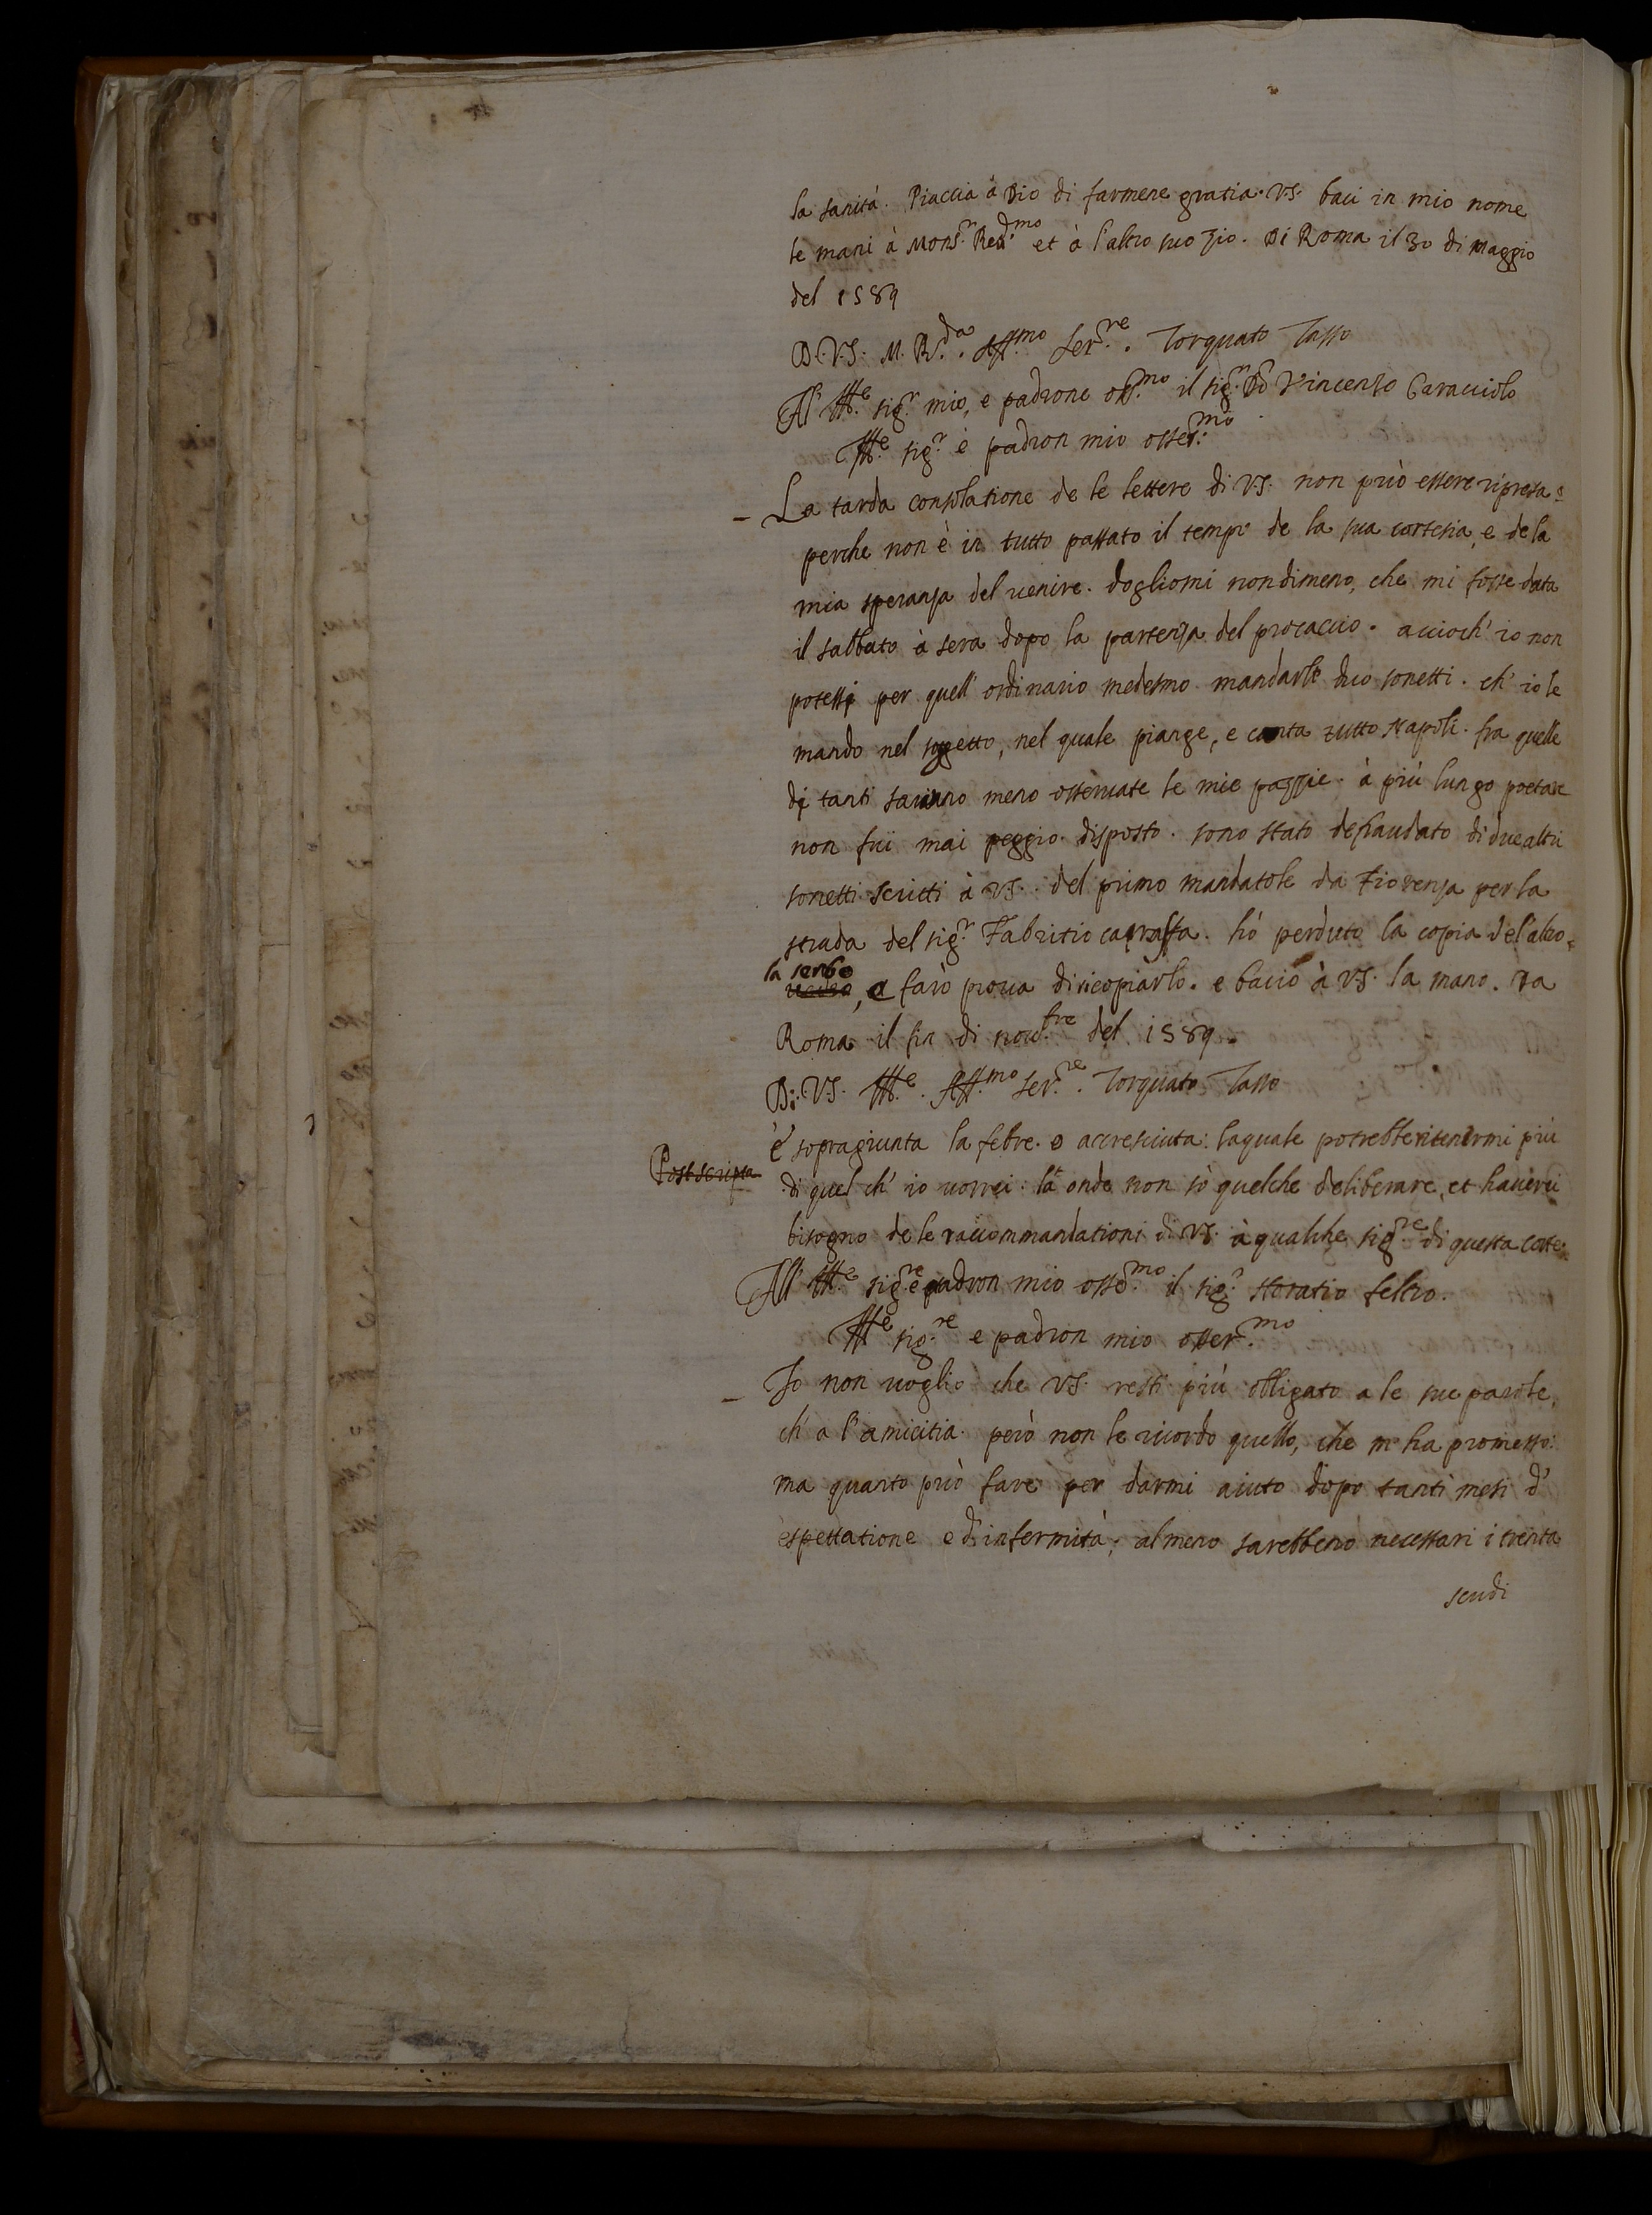 la sanità. Piaccia à Dio di farmene gratia. V.S. baci in mio nome
le mani à Mons.r Red.mo et à l'altro suo zio. Di Roma il 30 di Maggio
del 1589
D. V.S. M. R.da. Aff.mo Ser.re. Torquato Tasso
All' Ill.e sig.r mio, e padrone oss.mo il sig.r Don Vincenzo Caracciolo
Ill.e sig.r e padron mio osser.mo
- La tarda consolatione de le lettere di V.S. non può essere ripresa:
perche non è in tutto passato il tempo de la sua cortesia, e de la
mia speranza del venire. dogliomi nondimeno, che mi fosse data
il sabbato à sera dopo la partenza del procaccio. accioch' io non
potessi per quell' ordinario medesmo mandarle duo sonetti. ch' io le
mando nel soggetto, nel quale piange, e canta tutto Napoli. fra quelle
di tanti saranno meno osservate le mie pazzie. à più lungo poetare
non fui mai peggio disposto. sono stato defraudato di due altri
sonetti scritti à V.S. del primo mandatole da Fiorenza per la
strada del sig.r Fabritio caraffa. hò perduto la copia. de l'altro
la serbo
, e farò prova di ricopiarlo. e bacio à V.S. la mano. Da
Roma il fin di nov.bre del 1589.
Di. V.S. Ill.e. Aff.mo Ser.re. Torquato Tasso
È sopragiunta la febre. o accresciuta: laquale potrebbe ritenermi più
Post scripta
di quel ch' io vorrei. là onde non sò quelche deliberare, et haverei
bisogno de le raccommandationi di V.S. à qualche sig.re di questa corte.
All' Ill.e sig.re e padron mio osse.mo il sig.r Horatio feltro.
Ill.e sig.re e padron mio osser.mo
- Io non voglio che V.S. resti più obligato a le sue parole,
ch' a l'amicitia. però non le ricordo quello, che m' ha promesso:
ma quanto può fare per darmi aiuto dopo tanti mesi d'
espettatione e d'infermità; almeno sarebbeno necessari i trenta
scudi